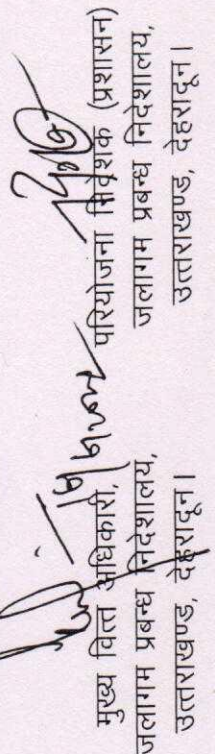 मुख्य वित्त अधिकारी,
जलागम प्रबन्ध निदेशालय,
उत्तराखण्ड, देहरादून।
परियोजना निदेशक (प्रशासन)
जलागम प्रबन्ध निदेशालय,
उत्तराखण्ड, देहरादून।